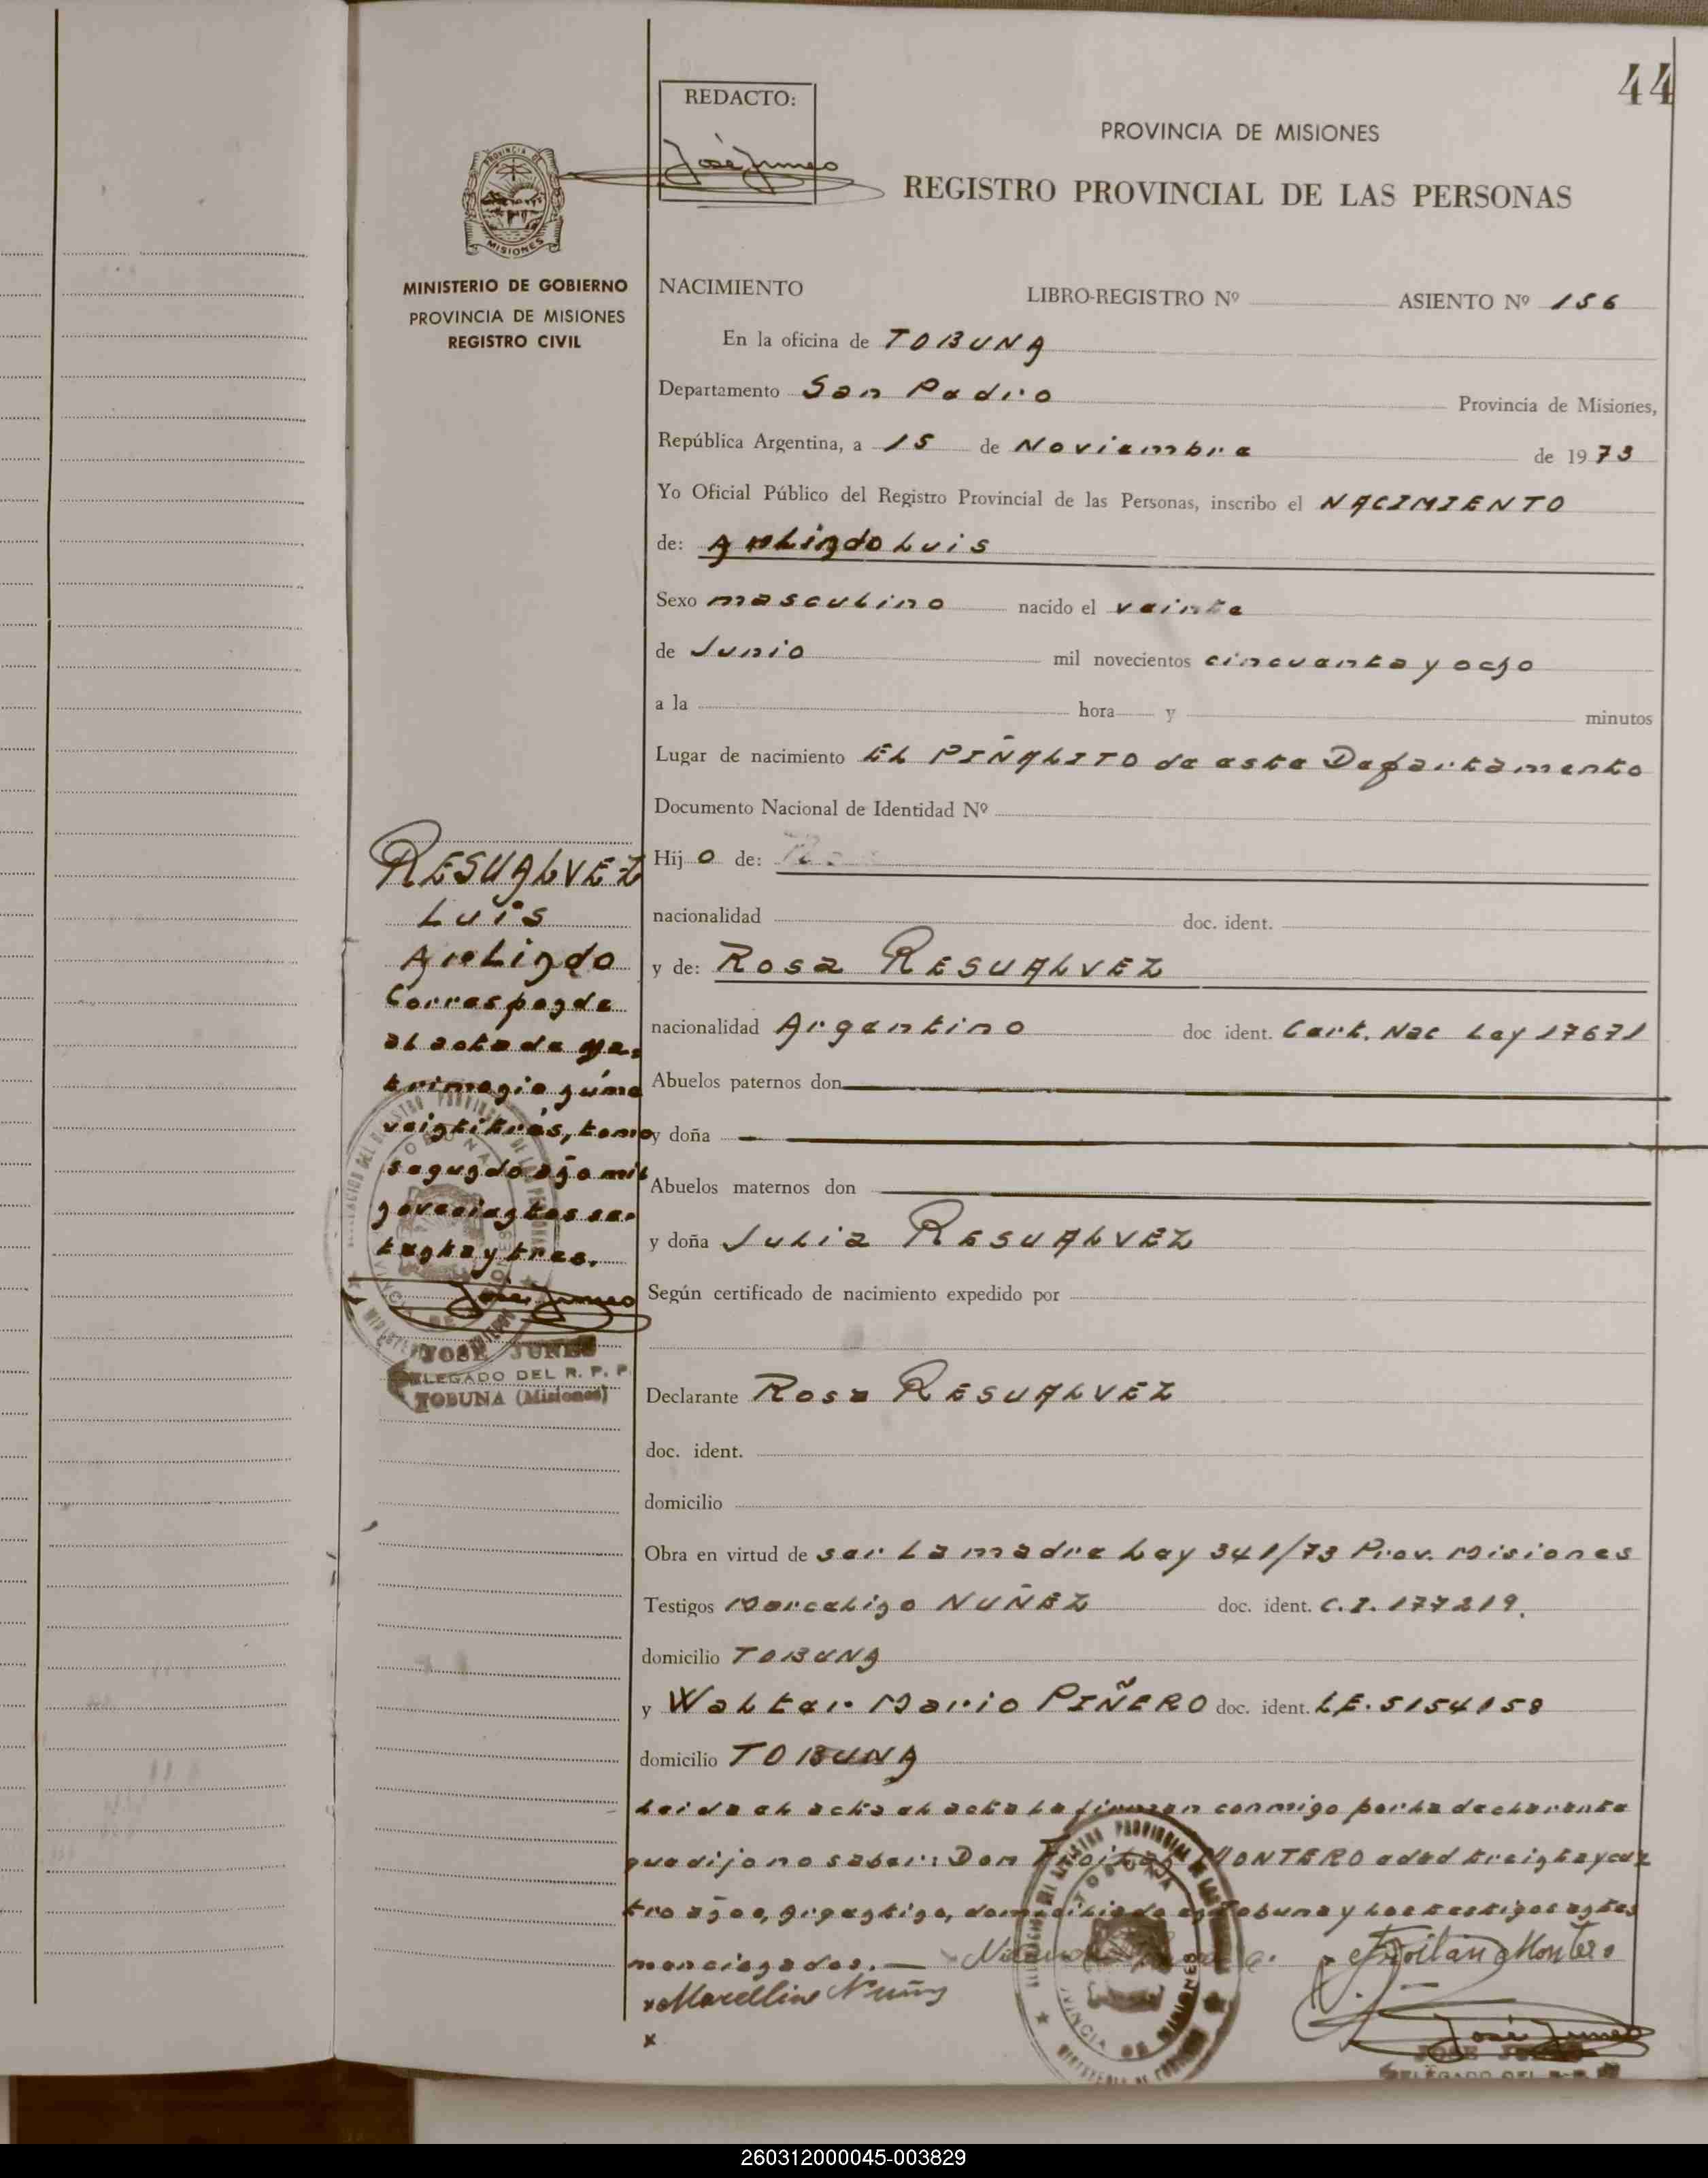 44
REDACTO:
José Junes
PROVINCIA DE MISIONES
REGISTRO PROVINCIAL DE LAS PERSONAS
PROVINCIA DE
MISIONES
MINISTERIO DE GOBIERNO
PROVINCIA DE MISIONES
REGISTRO CIVIL
NACIMIENTO LIBRO-REGISTRO Nº ASIENTO Nº 156
En la oficina de TOBUNA
Departamento San Pedro Provincia de Misiones,
República Argentina, a 15 de Noviembre de 1973
Yo Oficial Público del Registro Provincial de las Personas, inscribo el NACIMIENTO
de: Arlindo Luis
Sexo masculino nacido el veinte
de Junio mil novecientos cincuenta y ocho
a la hora y minutos
Lugar de nacimiento EL PIÑALITO de este Departamento
Documento Nacional de Identidad Nº
Hijo de:
nacionalidad doc. ident.
y de: Rosa RESUALVEZ
nacionalidad Argentino doc ident. Cert. Nac Ley 17671
Abuelos paternos don
y doña
Abuelos maternos don
y doña Julia RESUALVEZ
Según certificado de nacimiento expedido por
Declarante Rosa RESUALVEZ
doc. ident.
domicilio
Obra en virtud de ser la madre Ley 341/73 Prov. Misiones
Testigos Marcelino NUÑEZ doc. ident. C.I. 177219.
domicilio TOBUNA
y Walter Mario PIÑERO doc. ident. L.E. 5154158
domicilio TOBUNA
Leida el acta el acta la firman conmigo por la declarante
que dijo no saber: Don Froilan MONTERO edad treinta y cua
tro años, Argentino, domiciliado en Tobuna y los testigos antes
mencionados.
Froilan Montero
Marcelino Nuñez
x
José Junes
JOSE JUNES
DELEGADO DEL R. P. P.
RESUALVEZ
Luis
Arlindo
Corresponde
al acta de ma-
trimonio núme
veintitres, tomo
segundo año mil
novecientos se-
tenta y tres.
José Junes
JOSE JUNES
DELEGADO DEL R. P. P.
TOBUNA (Misiones)
260312000045-003829